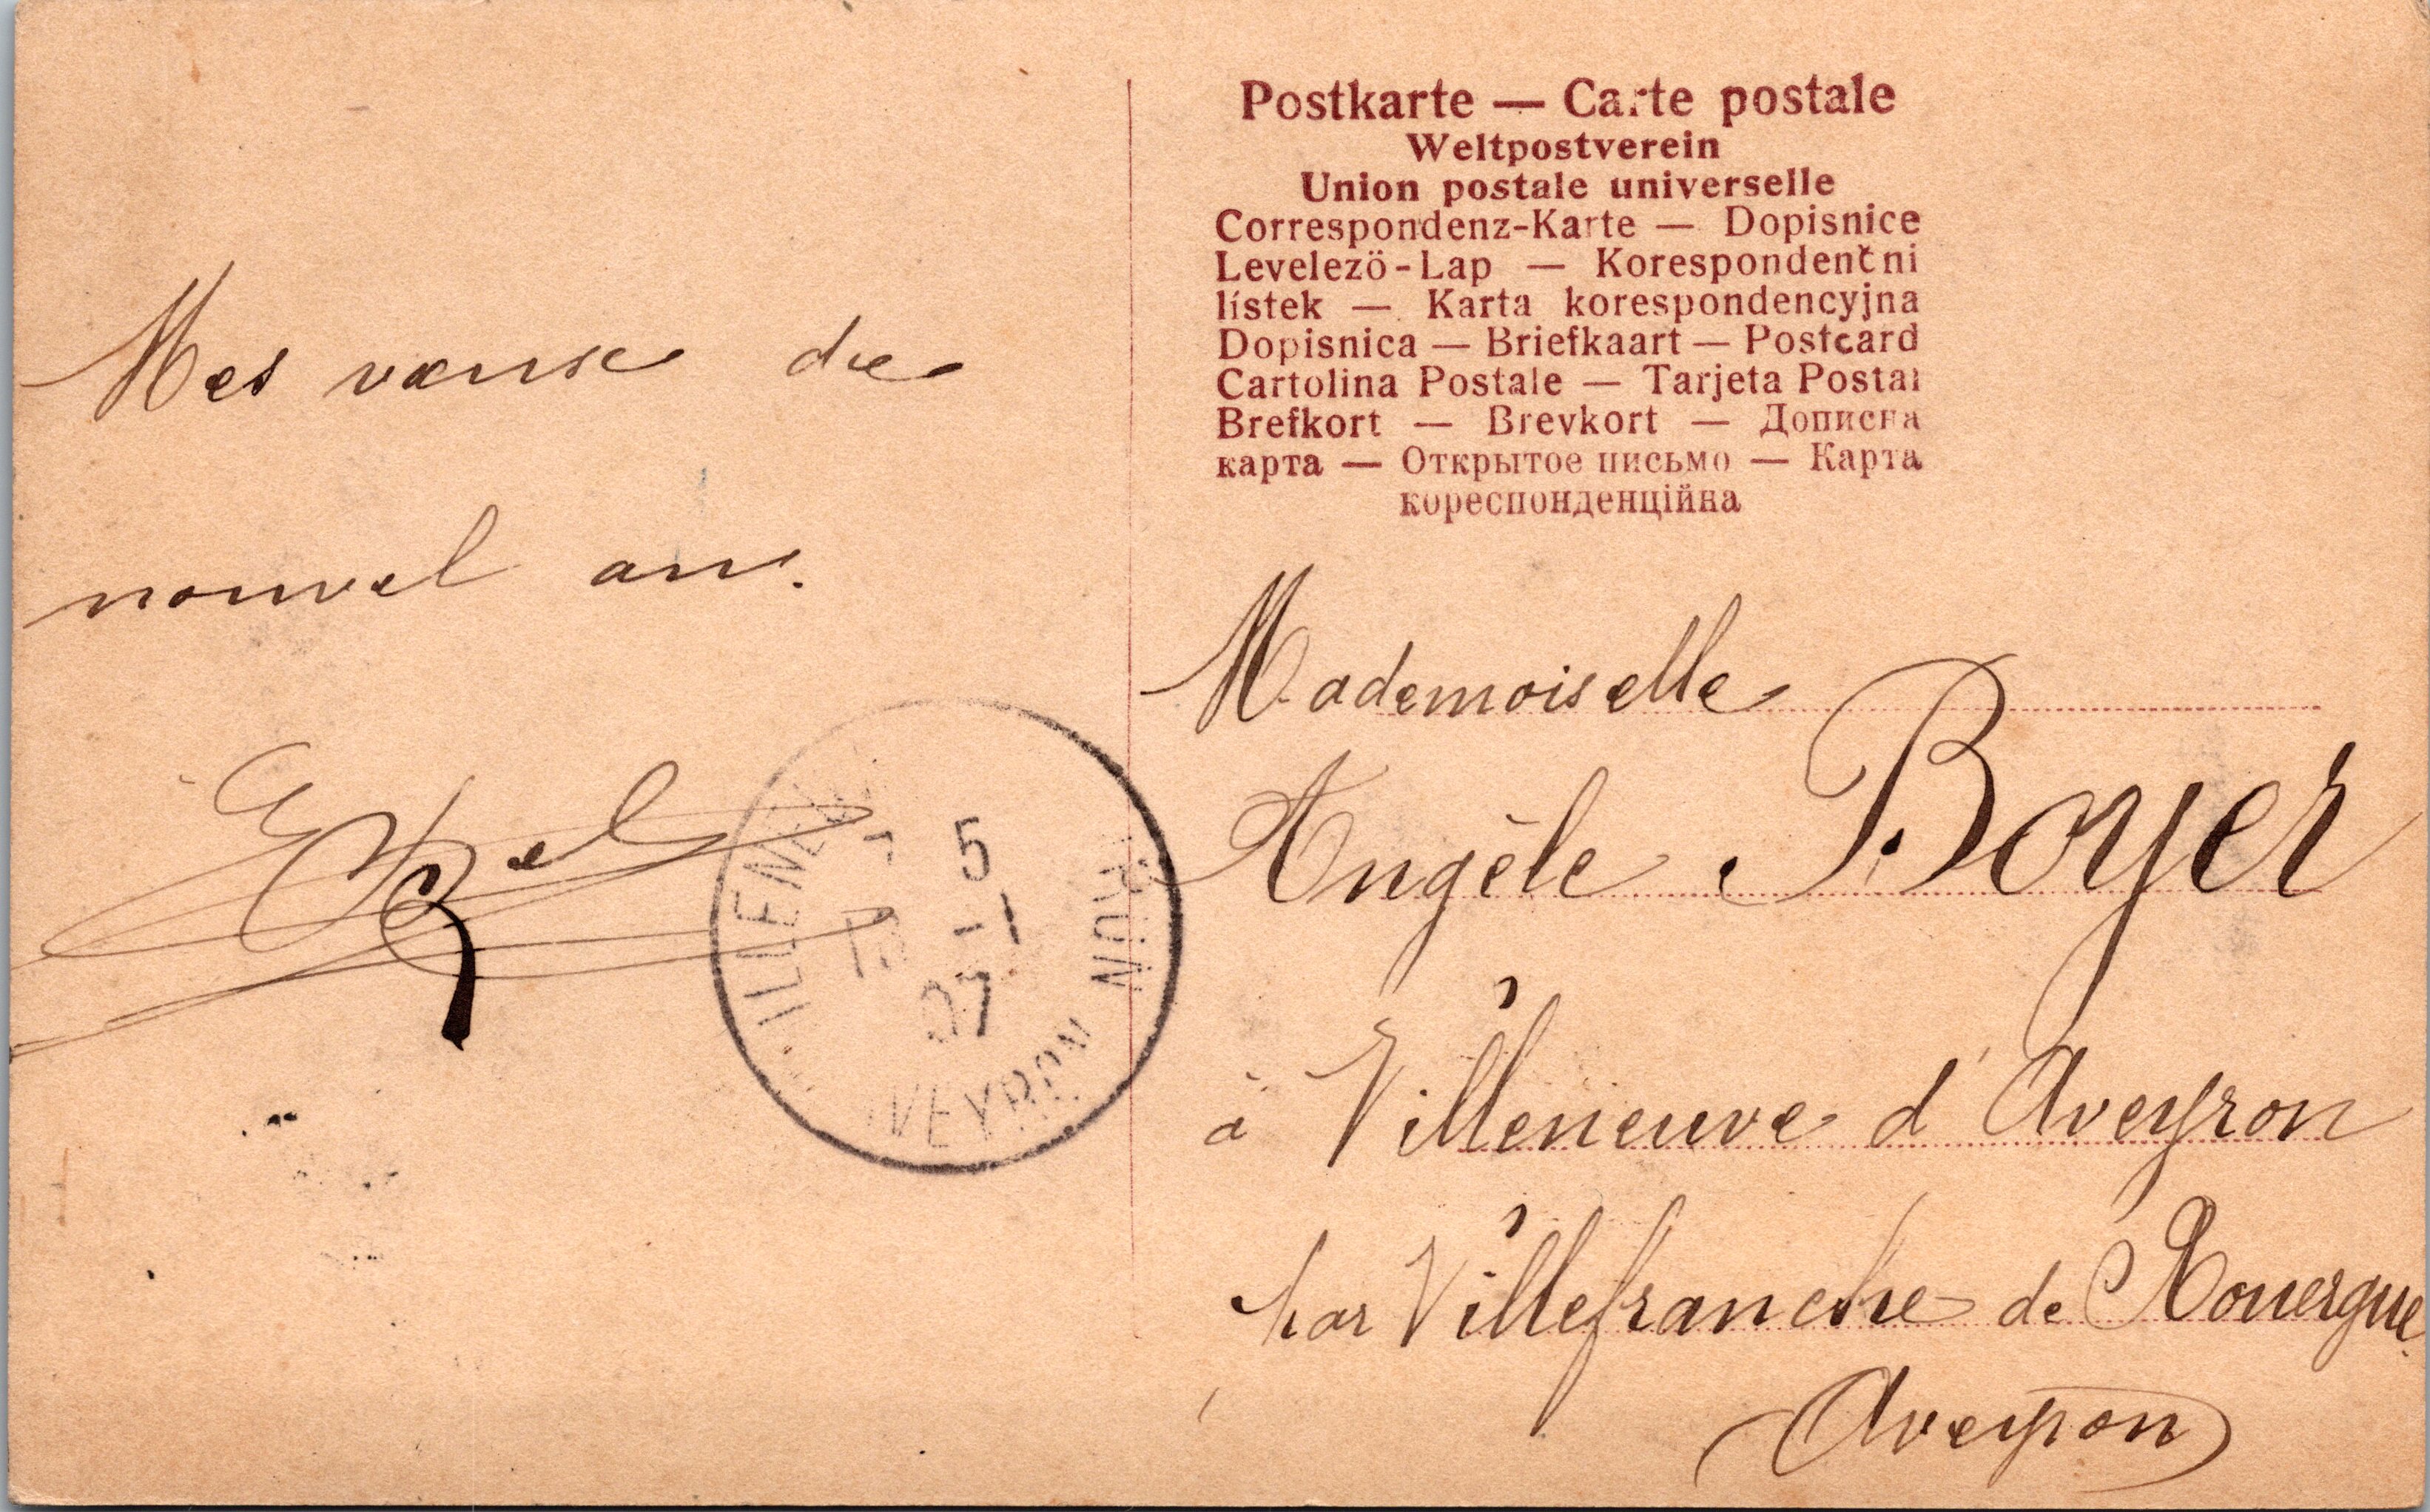 Postkarte — Carte postale
Weltpostverein
Union postale universelle
Correspondenz-Karte — Dopisnice
Levelezö-Lap — Korespondenčni
lístek — Karta korespondencyjna
Dopisnica — Briefkaart — Postcard
Cartolina Postale — Tarjeta Postal
Brefkort — Brevkort — Дописна
карта — Открытое письмо — Карта
кореспонденційна
Mes vœux de
nouvel an.
5
-1
07
AVEYRON
Mademoiselle
Angèle Boyer
à Villeneuve d'Aveyron
par Villefranche de Rouergue
Aveyron